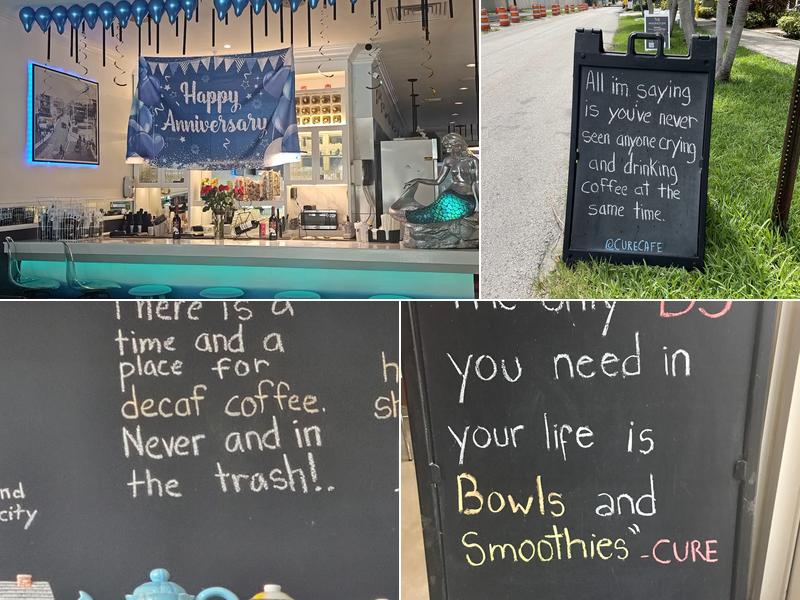 Happy
Anniversary
All im saying
is you've never
seen anyone crying
and drinking
coffee at the
same time.
@CURECAFE
There is a
time and a
place for
decaf coffee.
Never and in
the trash!.
city
The only BS
you need in
your life is
Bowls and
Smoothies" -CURE